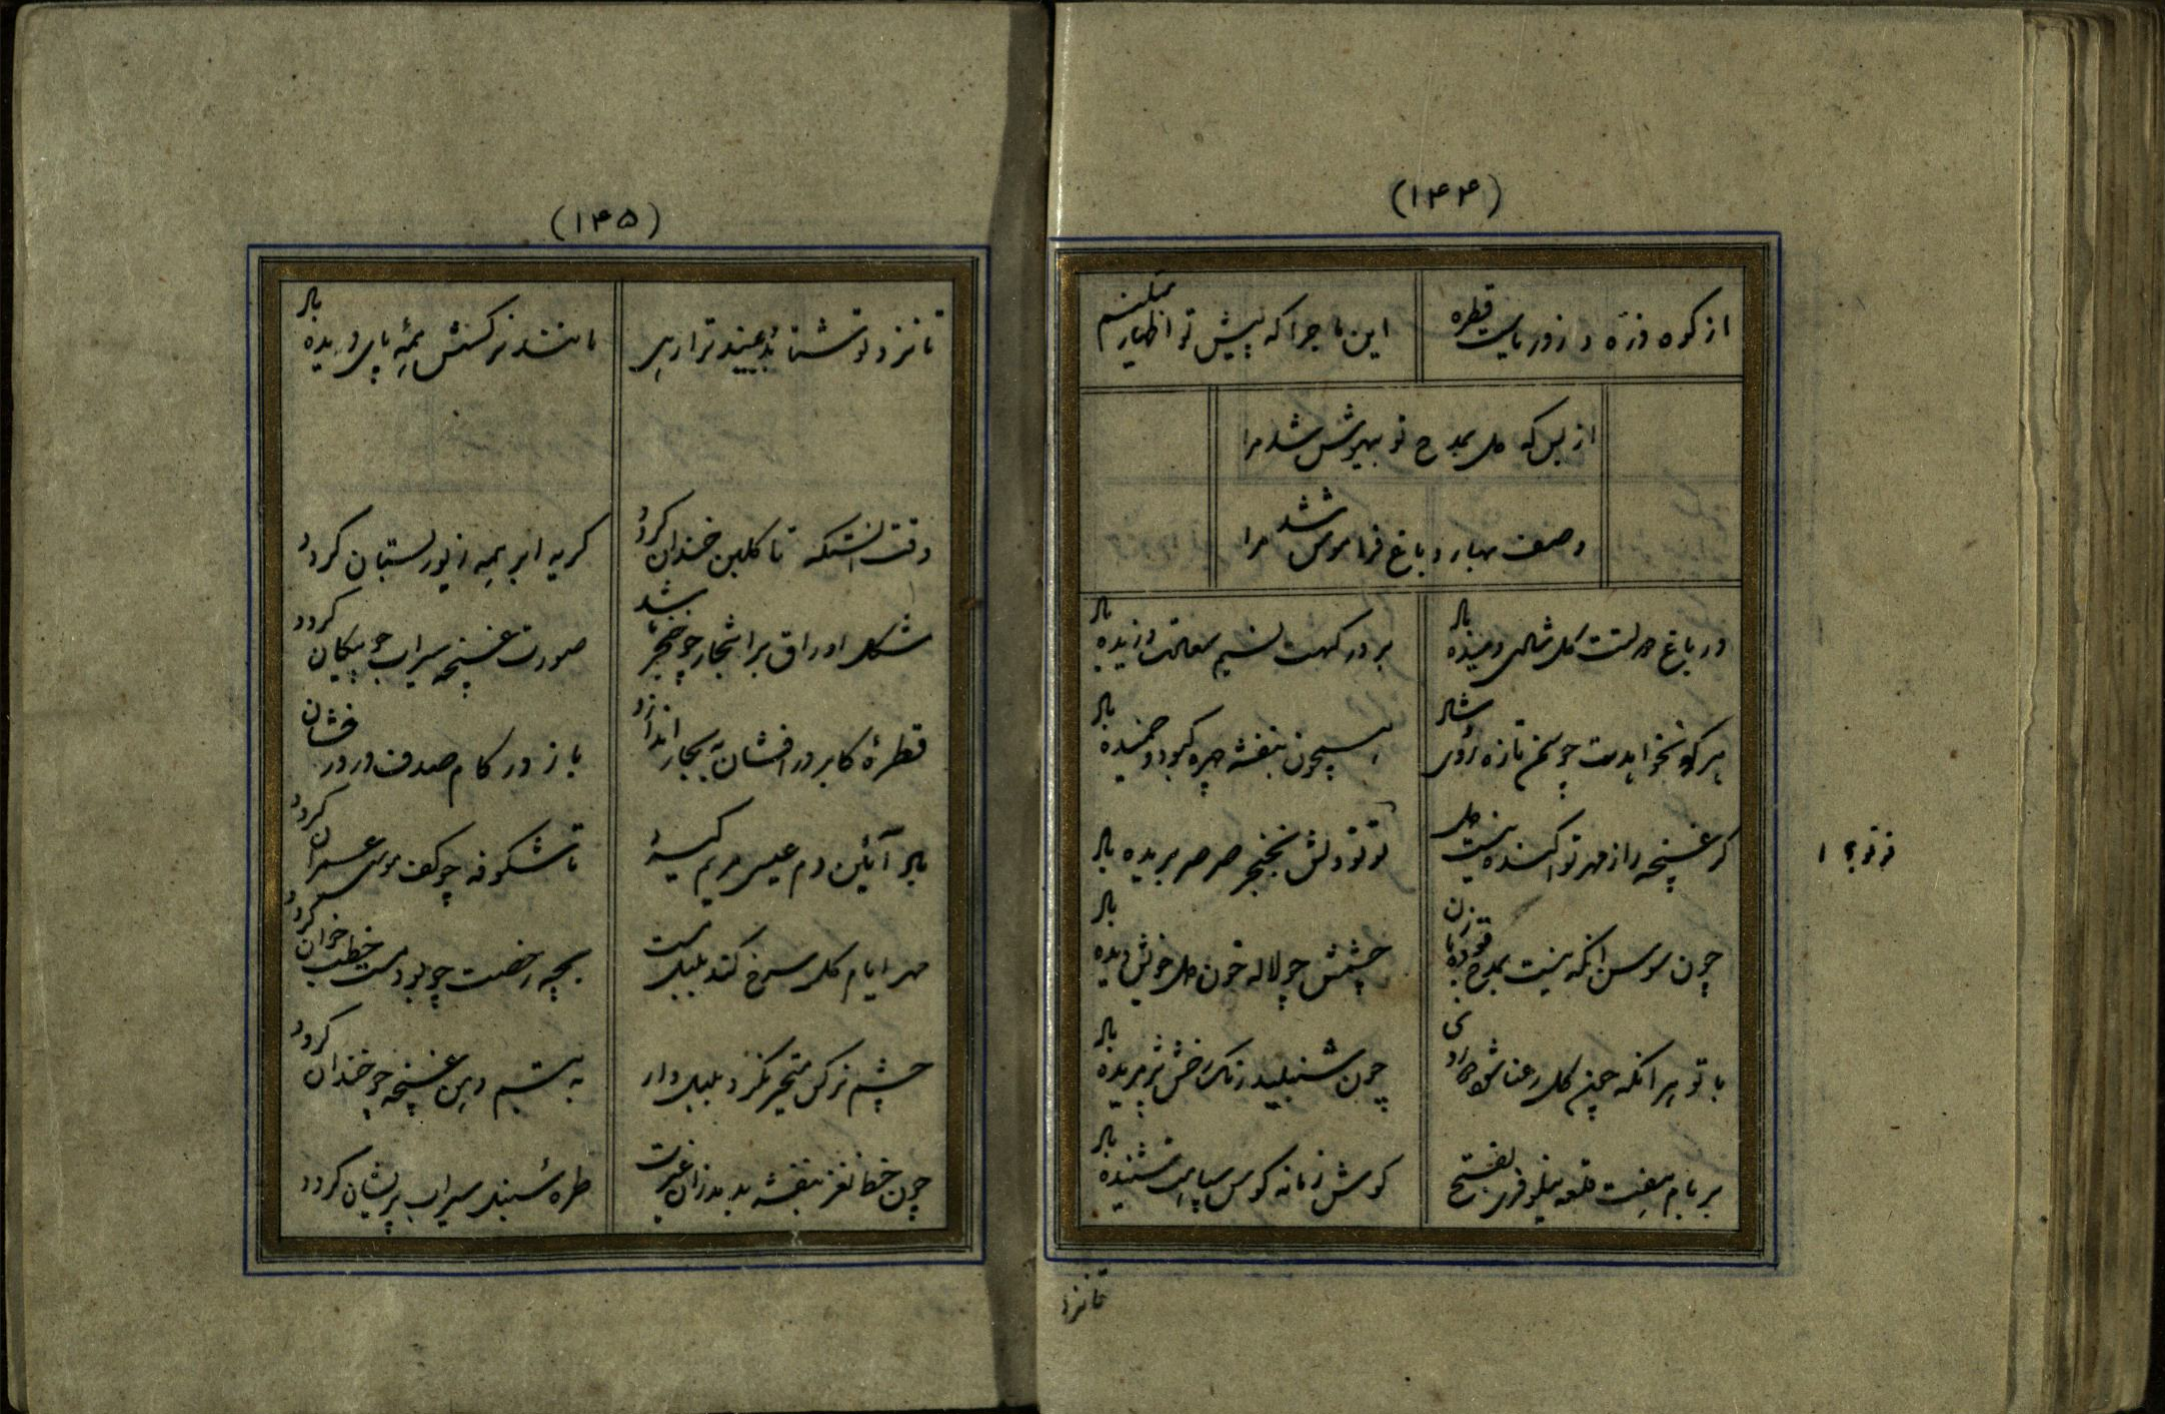 (۱۴۴)
از کوه و ذره و زور یاست قطره
این ماجرا که پیش تو اظهار میکنم
از بس که دل بمدح تو بیهوش شد مرا
وصف بهار و باغ فراموش شد مرا
در باغ دولتت گل شادی دمیده باد
بر درگهت نسیم سعادت وزیده باد
هر کو نخواهدت چو سمن تازه روی شاد
همچون بنفشه چهره کبود و خمیده باد
گر غنچه را ز مهر تو آکنده نیست دل
تو تو دلش بخنجر صرصر بریده باد
چون سوسن آنکه نیست بمدح تو ده زبان
چشمش چو لاله خون دل خویش دیده باد
با تو هر آنکه چون گل رعنا
چون شنبلید رنگ رخش پریده باد
بر بام هفت قلعه نیلوفری بفتح
گوش زمانه کوس سپاهت شنیده باد
تو تو؟ ۱
تا نزد
(۱۴۵)
تا نزد تو شتابد بیند ترا رهی
مانند نرگسش همه پای دیده باد
وقت آنستکه تا گلبن خندان گردد
گریه ابر همه زیور بستان گردد
شکل اوراق بر اشجار چو خنجر باشد
صورت غنچه سیراب چو پیکان گردد
قطره کابر درافشان به بحار اندازد
باز در کام صدف در درفشان گردد
باد آئین دم عیسی مریم گیرد
تا شکوفه چو کف موسی عمران گردد
مهد ایام گل سرخ کند بلبل مست
بچه رخصت چو بود مست خطب خوان گردد
چشم نرگس متحیر نگرد بلبل وار
به تبسم دهن غنچه چو خندان گردد
چون خط نغز بنفشه بدمد زان غیرت
طره سنبل سیراب پریشان گردد